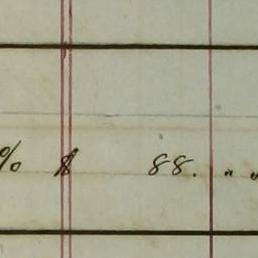 % $ 88. " "